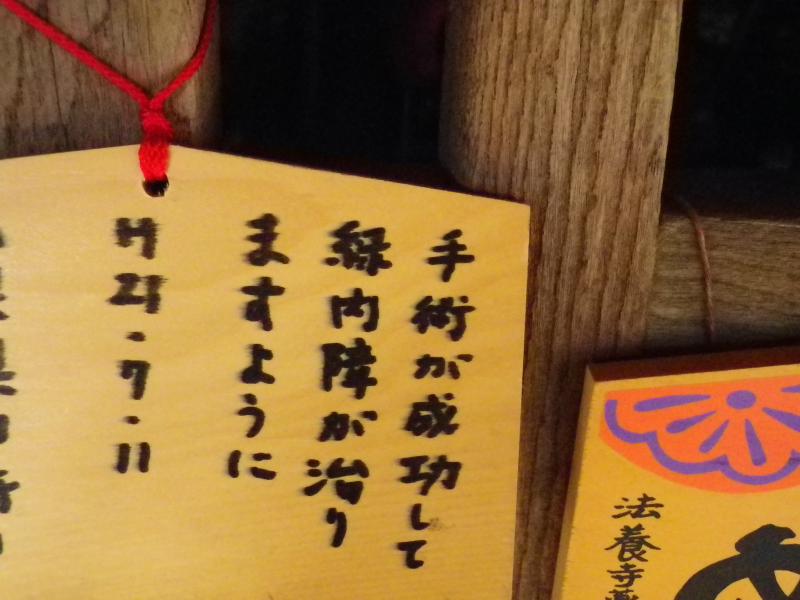 手術が成功して
緑内障が治り
ますように
H21.7.11
法養寺薬